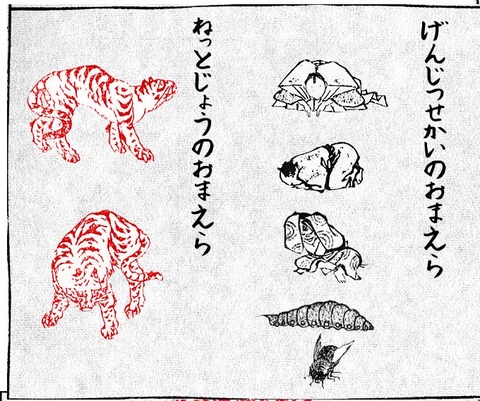 げんじつせかいのおまえら
ねっとじょうのおまえら